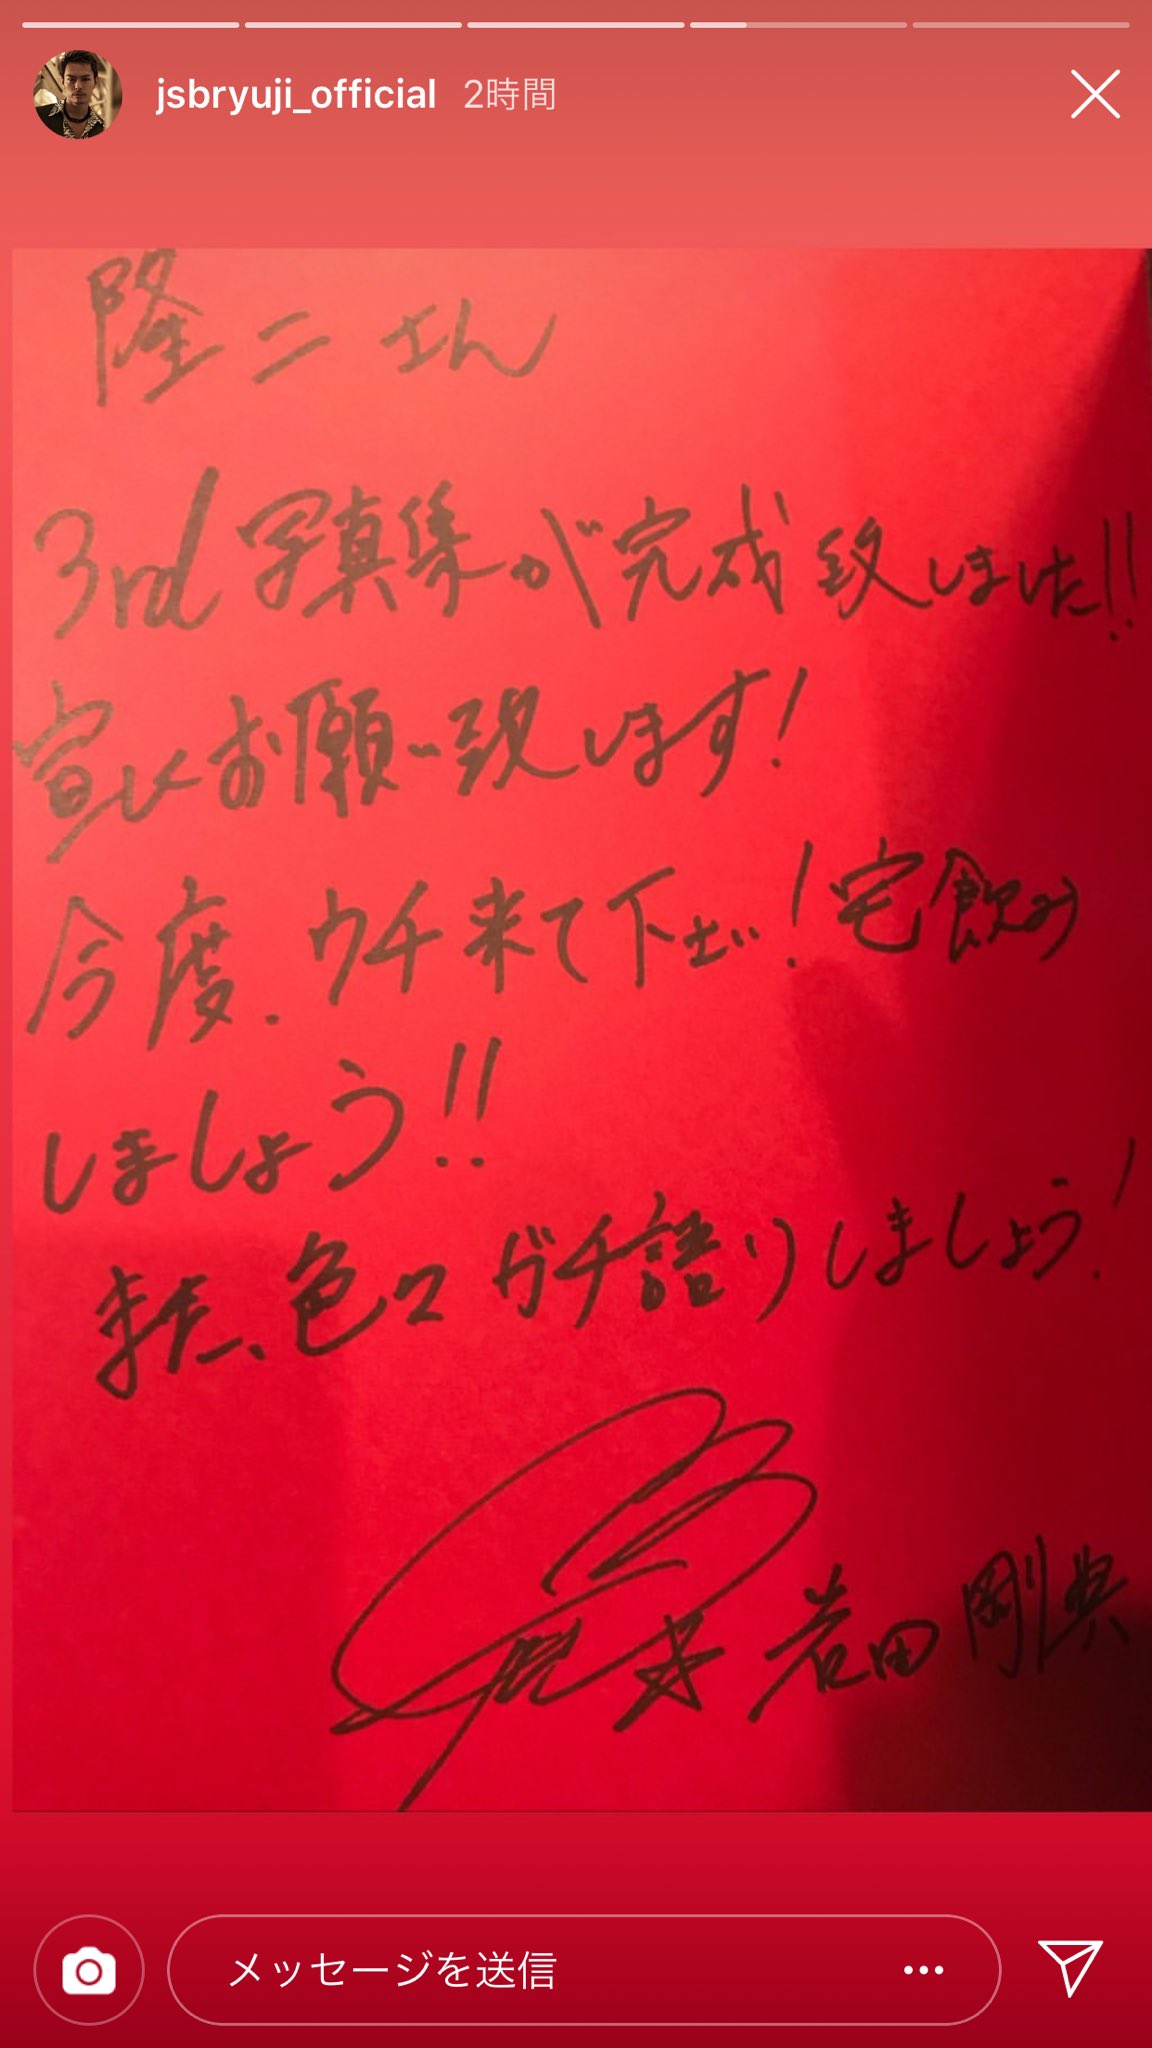 jsbryuji_official 2時間
隆二さん
3rd写真集が完成致しました!!
宜しくお願い致します!
今度、ウチ来て下さい!宅飲み
しましょう!!
また、色々ガチ語りしましょう!
岩田剛典
メッセージを送信